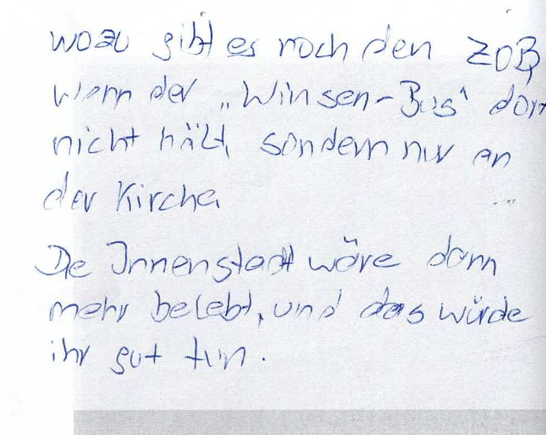 wozu gibt es noch den ZOB,
wenn der „Winsen-Bus“ dort
nicht hält, sondern nur an
der Kirche.
Die Innenstadt wäre dann
mehr belebt, und das würde
ihr gut tun.